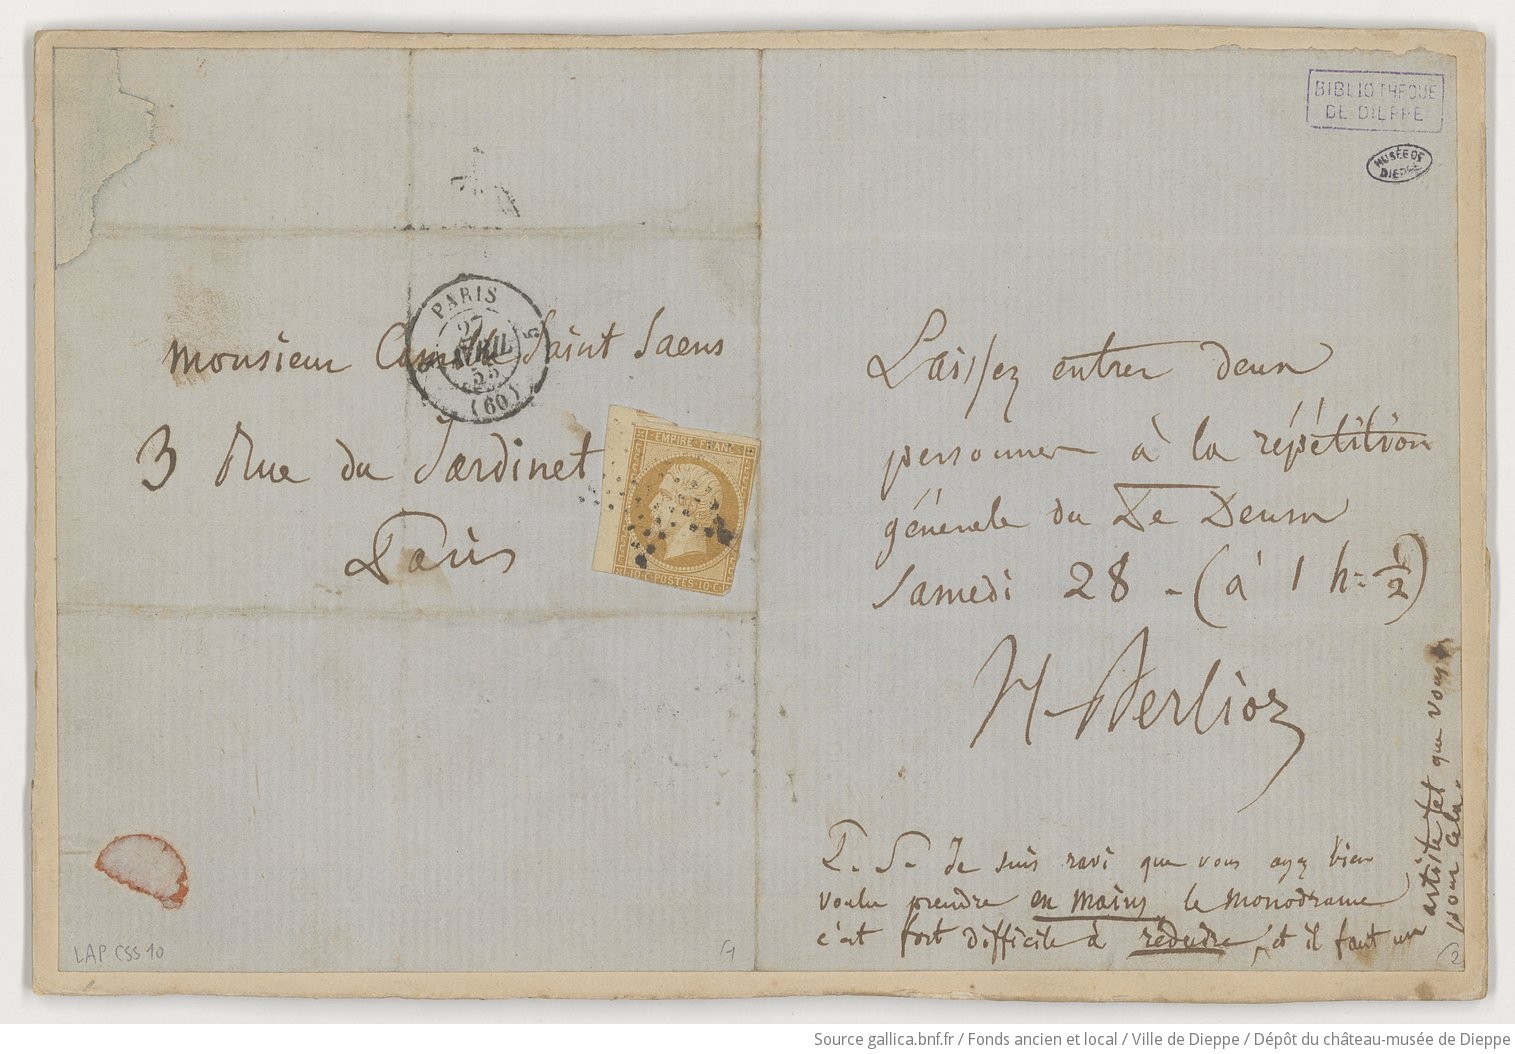 Monsieur Camille Saint Saens
3 Rue du Jardinet
Paris
PARIS
5
27
AVRIL
55
(60)
EMPIRE FRANC
10·C·POSTES·10·C
LAP CSS 10
BIBLIOTHEQUE
DE DIEPPE
MUSÉE DE
DIEPPE
Laissez entrer deux
personnes à la répétition
générale du Te Deum
Samedi 28 - (à 1 h = 1/2)
H. Berlioz
P. S. Je suis ravi que vous ayez bien
voulu prendre en mains le monodrame
c'est fort difficile à réduire, et il faut un
artiste tel que vous
pour cela.
2
Source gallica.bnf.fr / Fonds ancien et local / Ville de Dieppe / Dépôt du château-musée de Dieppe